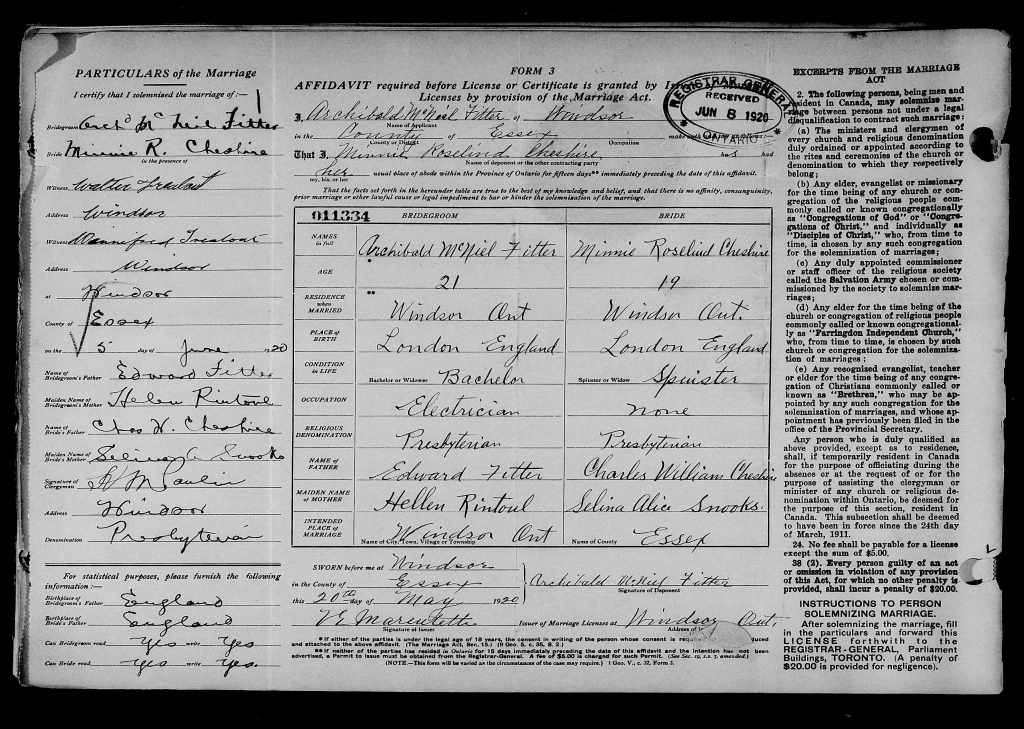 PARTICULARS of the Marriage
I certify that I solemnised the marriage of:—
Bridegroom Archd Mc Neil Fitter
Bride Minnie R. Cheshire
in the presence of
Witness Walter
Address Windsor
Witness
Address Windsor
at Windsor
County of Essex
on the 5 day of June 1920
Name of Bridegroom's Father Edward Fitter
Maiden Name of Bridegroom's Mother Helen Rintoul
Name of Bride's Father Chas W. Cheshire
Maiden Name of Bride's Mother Selina A Snooks
Signature of Clergyman
Address Windsor
Denomination Presbyterian
For statistical purposes, please furnish the following
information:—
Birthplace of Bridegroom's Father England
Birthplace of Bride's Father England
Can Bridegroom read Yes write Yes
Can Bride read Yes write Yes.
FORM 3
AFFIDAVIT required before License or Certificate is granted by
Licenses by provision of the Marriage Act.
REGISTRAR GENERAL
RECEIVED
JUN 8 1920
ONTARIO
I, Archibald McNiel Fitter of Windsor
Name of Applicant
in the County of Essex make oath
County or District
Occupation
That I Minnie Roselind Cheshire, and
Name of deponent or the other contracting party
her usual place of abode within the Province of Ontario for fifteen days** immediately preceding the date of this affidavit.
my, his, or her
That the facts set forth in the hereunder table are true to the best of my knowledge and belief, and that there is no affinity, consanguinity,
prior marriage or other lawful cause or legal impediment to bar or hinder the solemnisation of the marriage.
011334 BRIDEGROOM BRIDE
NAMES in full Archibald McNiel Fitter Minnie Roselind Cheshire
AGE 21 19
RESIDENCE when MARRIED ** Windsor Ont Windsor Ont.
PLACE of BIRTH London England London England
CONDITION IN LIFE Bachelor or Widower Bachelor Spinster or Widow Spinster
OCCUPATION Electrician None
RELIGIOUS DENOMINATION Presbyterian Presbyterian
NAME OF FATHER Edward Fitter Charles William Cheshire
MAIDEN NAME OF MOTHER Hellen Rintoul Selina Alice Snooks.
INTENDED PLACE OF MARRIAGE Windsor Ont Essex
Name of City, Town, Village or Township Name of County
SWORN before me at Windsor
in the County of Essex
this 20th day of May 1920
Archibald McNiel Fitter
Signature of Deponent
V E Marentette Issuer of Marriage Licenses at Windsor Ont.
Signature of Issuer Address of
* If either of the parties is under the legal age of 18 years, the consent in writing of the person whose consent is
and attached to the above affidavit. (The Marriage Act, Sec. 15.) (9 Geo. 5, c. 35, S. 2.)
** If neither of the parties has resided in Ontario for 15 days immediately preceding the date of this affidavit and the intention has not been
advertised, a Permit to issue must be obtained from the Registrar-General. A fee of $5.00 is charged for such Permit. (See Sec. 19, s.s. 7, amended.)
(NOTE.—This form will be varied as the circumstances of the case may require.) 1 Geo. V., c. 32, Form 3.
EXCERPTS FROM THE MARRIAGE
ACT
2. The following persons, being men and
resident in Canada, may solemnize mar-
riage between persons not under a legal
disqualification to contract such marriage:
(a) The ministers and clergymen of
every church and religious denomination
duly ordained or appointed according to
the rites and ceremonies of the church or
denomination to which they respectively
belong;
(b) Any elder, evangelist or missionary
for the time being of any church or con-
gregation of the religious people com-
monly called or known congregationally
as "Congregations of God" or "Congre-
gations of Christ," and individually as
"Disciples of Christ," who, from time to
time, is chosen by any such congregation
for the solemnization of marriages;
(c) Any duly appointed commissioner
or staff officer of the religious society
called the Salvation Army chosen or com-
missioned by the society to solemnize mar-
riages;
(d) Any elder for the time being of the
church or congregation of religious people
commonly called or known congregational-
ly as "Farringdon Independent Church,"
who, from time to time, is chosen by such
church or congregation for the solemniza-
tion of marriages;
(e) Any recognised evangelist, teacher
or elder for the time being of any congre-
gation of Christians commonly called or
known as "Brethren," who may be ap-
pointed by any such congregation for the
solemnization of marriages, and whose
appointment has previously been filed in the
office of the Provincial Secretary.
Any person who is duly qualified as
above provided, except as to residence,
shall, if temporarily resident in Canada
for the purpose of officiating during the
absence or at the request of or for the
purpose of assisting the clergyman or
minister of any church or religious de-
nomination within Ontario, be deemed for
the purpose of this section, resident in
Canada. This subsection shall be deemed
to have been in force since the 24th day
of March, 1911.
24. No fee shall be payable for a license
except the sum of $5.00.
38 (2). Every person guilty of an act
or omission in violation of any provision
of this Act, for which no other penalty is
provided, shall incur a penalty of $20.00.
INSTRUCTIONS TO PERSON
SOLEMNIZING MARRIAGE.
After solemnizing the marriage, fill
in the particulars and forward this
LICENSE forthwith to the
REGISTRAR-GENERAL, Parliament
Buildings, TORONTO. (A penalty of
$20.00 is provided for negligence).